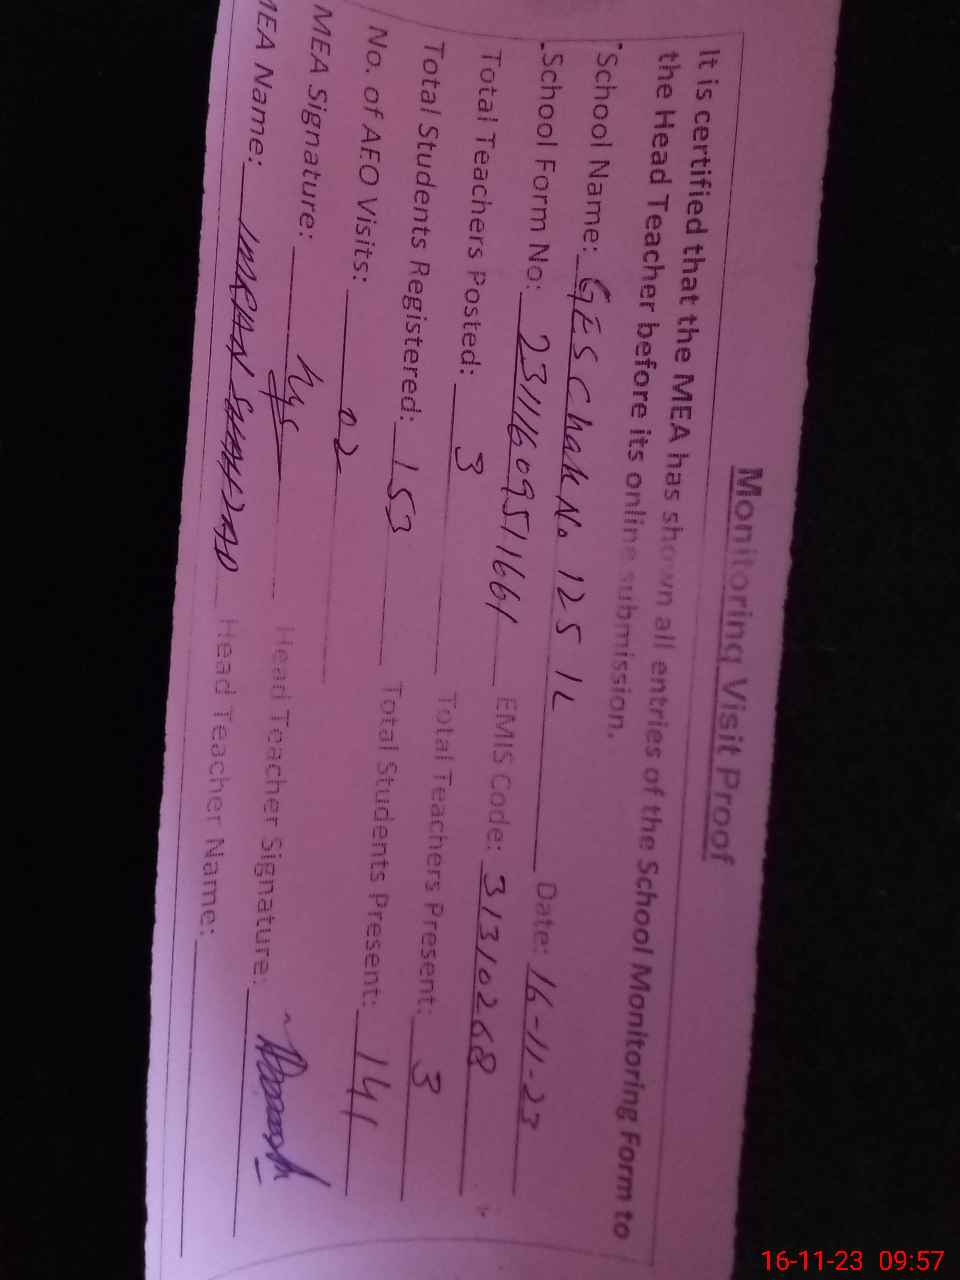 Monitoring Visit Proof
It is certified that the MEA has shown all entries of the School Monitoring Form to
the Head Teacher before its online submission.
School Name: GES Chak No. 125 1L Date: 16-11-23
School Form No: 23111609511661 EMIS Code: 31310268
Total Teachers Posted: 3 Total Teachers Present: 3
Total Students Registered: 153 Total Students Present: 141
No. of AEO Visits: 02
MEA Signature: Head Teacher Signature:
MEA Name: IMRAN SHAHZAD Head Teacher Name:
16-11-23 09:57